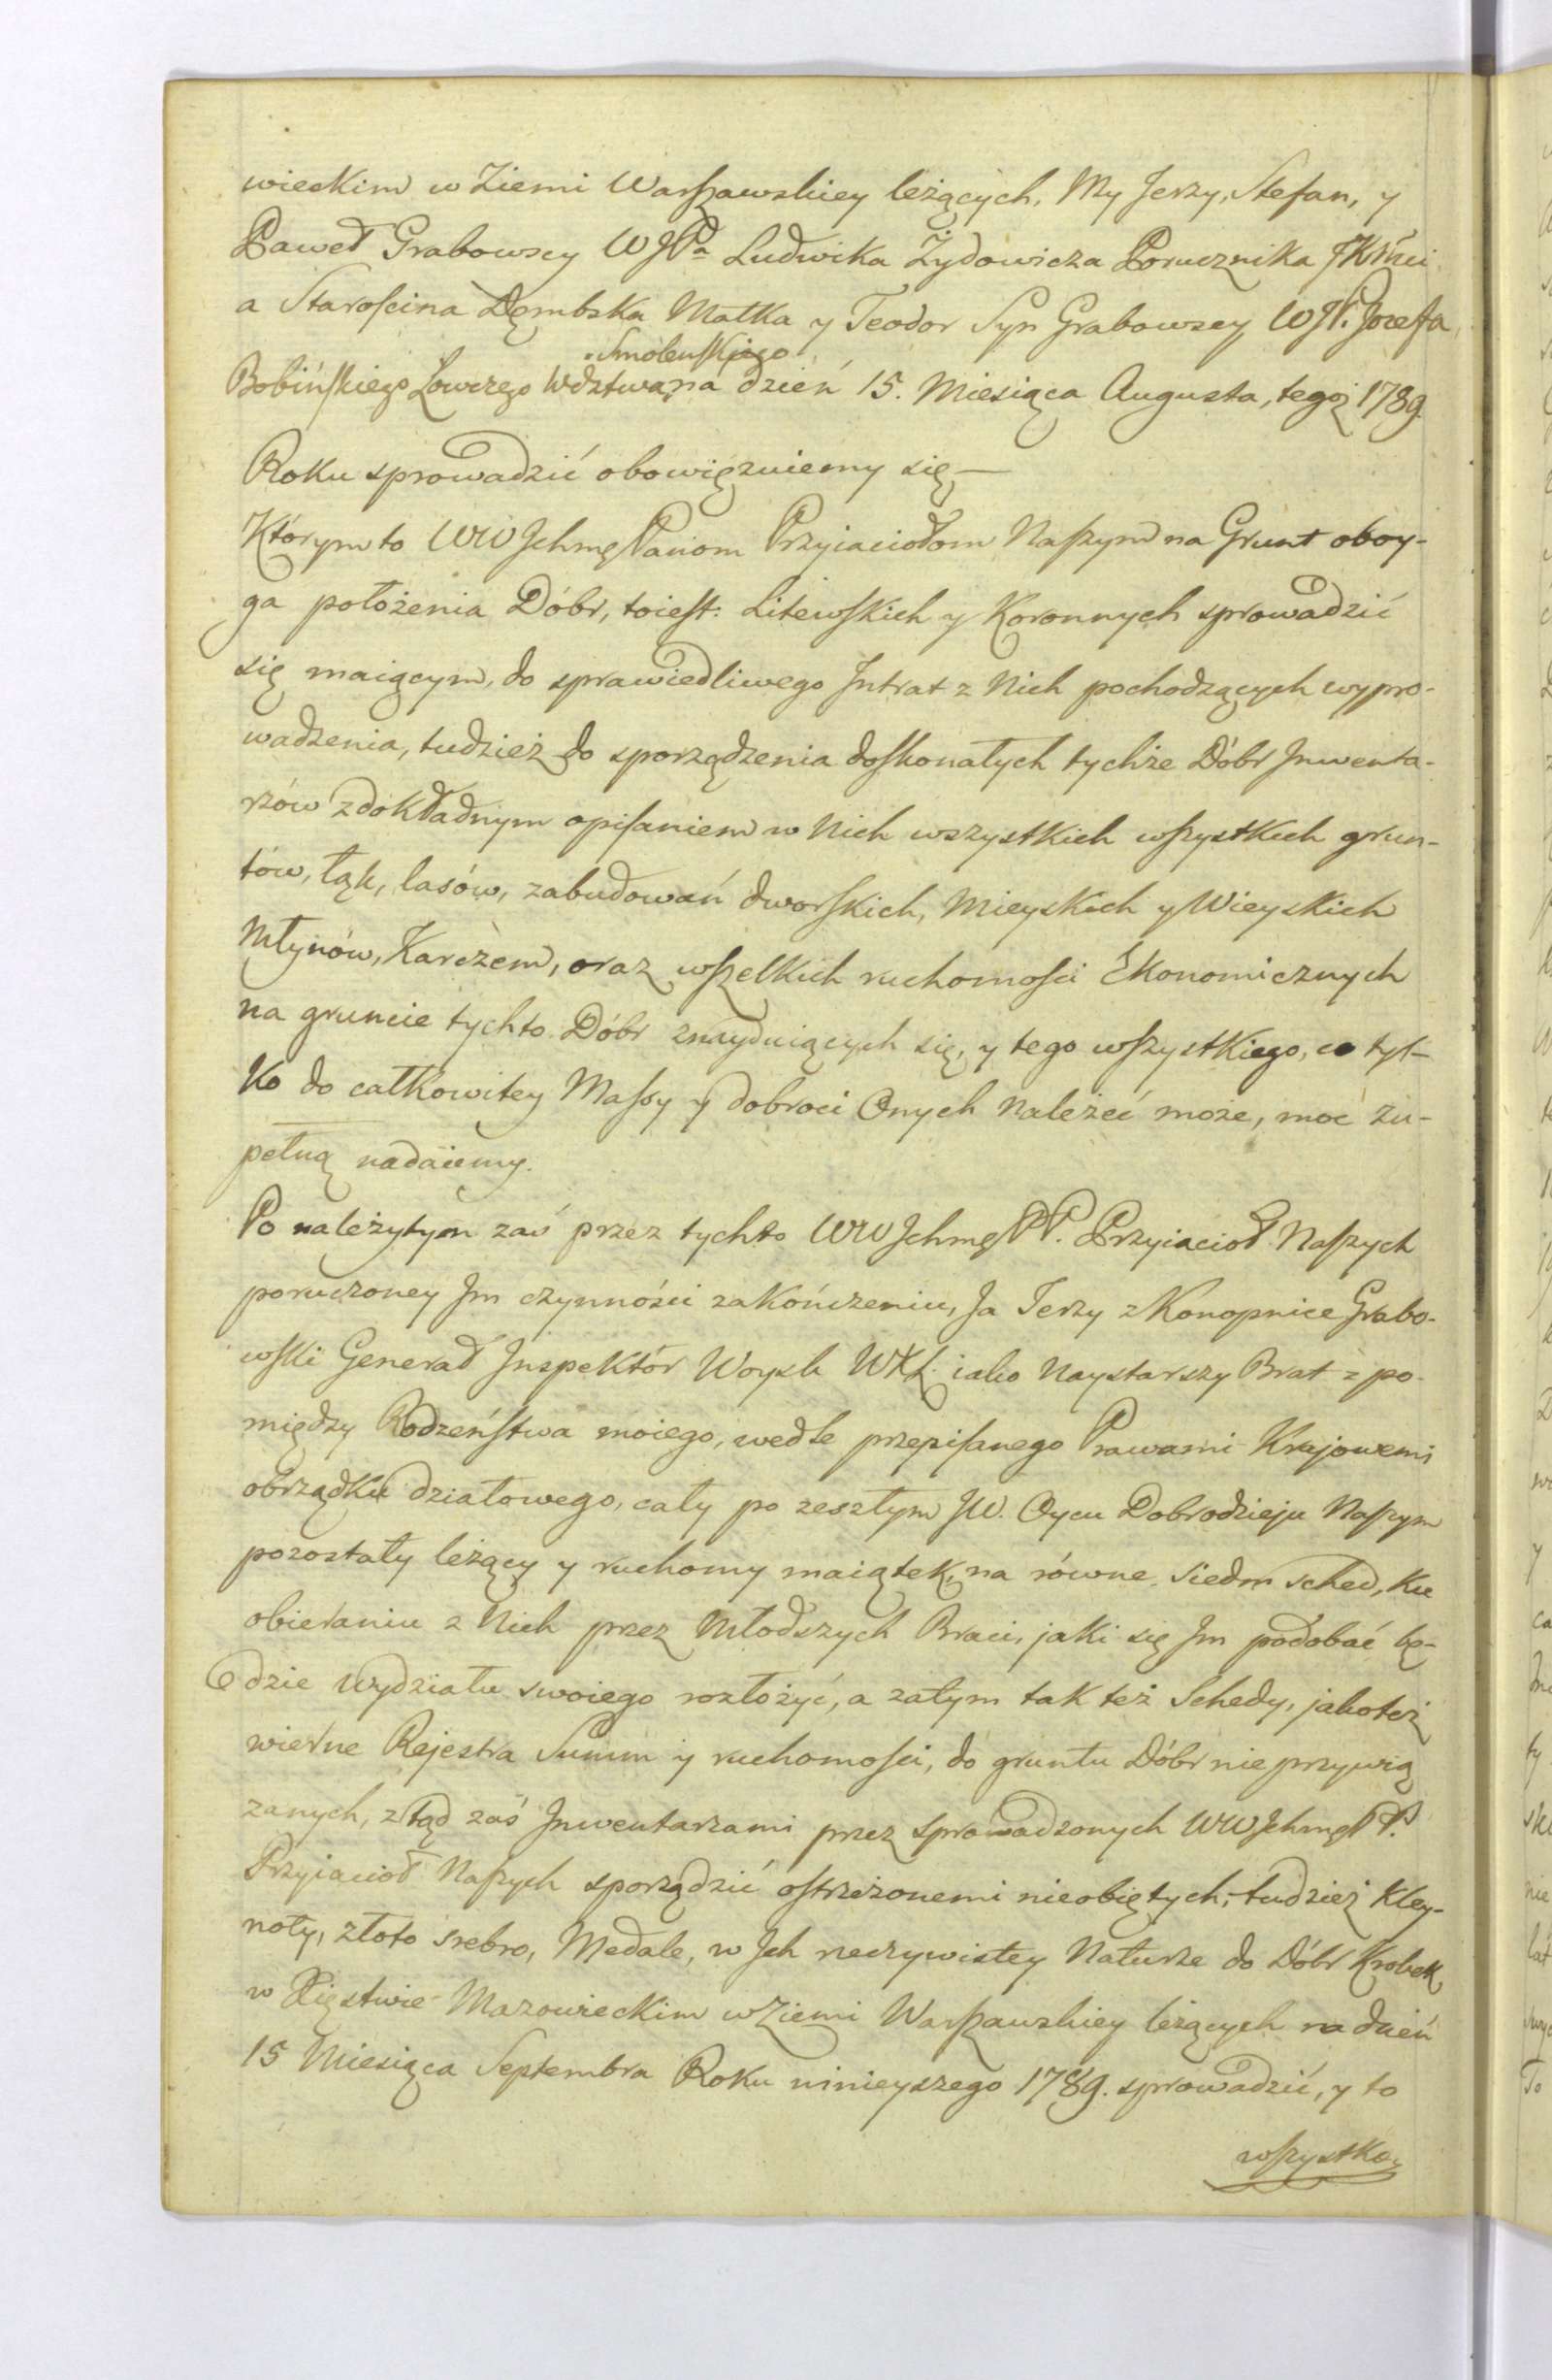 wieckim w Ziemi Warszawskiey leżących, My Jerzy, Stefan, y
Paweł Grabowscy WJPa Ludwika Żydowicza Porucznika JKMci
a Starościna Dęmbska Matka y Teodor Syn Grabowscy WJP. Jozefa
Smoleńskiego
Bobińskiego Łowczego Wdztwa, na dzień 15. Miesiąca Augusta, tegoż 1789
Roku sprowadzić obowięzuiemy się —
Którym to WW Jchmę Paniom Przyiaciołom Naszym na Grunt oboy-
ga położenia Dóbr, toiest: Litewskich y Koronnych sprowadzić
się maiącym, do sprawiedliwego Intrat z Nich pochodzących wypro-
wadzenia, tudzież do sporządzenia doskonałych tychże Dóbr Inwenta-
rzów z dokładnym opisaniem w Nich wszystkich wszystkich grun-
tów, łąk, lasów, zabudowań dworskich, Mieyskich y Wieyskich
Młynów, Karczem, oraz wszelkich ruchomości Ekonomicznych
na gruncie tychto Dóbr znayduiących się, y tego wszystkiego, co tyl-
ko do całkowitey Massy y dobroci Onych należeć może, moc zu-
pełną nadaiemy.
Po należytym zaś przez tychto WW Jchmę PP. Przyiacioł Naszych
poruczoney Jm czynności zakończeniu, Ja Jerzy z Konopnice Grabo-
wski Generał Inspektór Woysk WXL. iako Naystarszy Brat z po-
między Rodzeństwa moiego, wedle przepisanego Prawami Krajowemi
obrządku działowego, cały po zeszłym JW. Oycu Dobrodzieju Naszym
pozostały leżący y ruchomy maiątek, na równe siedm sched, ku
obieraniu z Nich przez Młodszych Braci, jaki się Jm podobać bę-
dzie Wydziału swoiego rozłożyć, a zatym tak też Schedy, jakoteż
wierne Rejestra Summ y ruchomości, do gruntu Dóbr nie przywią
zanych, ztąd zaś Inwentarzami przez sprowadzonych WW Jchmę PP.
Przyiacioł Naszych sporządzić ostrzeżonemi nieobiętych; tudzież Kley-
noty, złoto srebro, Medale, w Jch rzeczywistey Naturze do Dóbr Krobek
w Xięstwie Mazowieckim w Ziemi Warszawskiey leżących na dzień
15 Miesiąca Septembra Roku ninieyszego 1789. sprowadzić, y to
wszystko